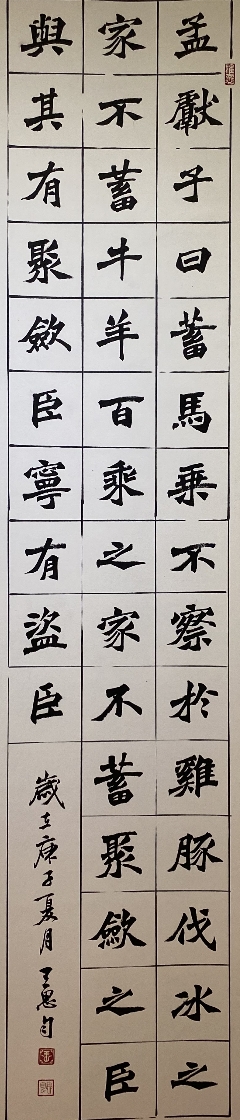 孟獻子曰蓄馬乗不察於雞豚伐冰之
家不蓄牛羊百乘之家不蓄聚斂之臣
與其有聚斂臣寧有盜臣
歲在庚子夏月